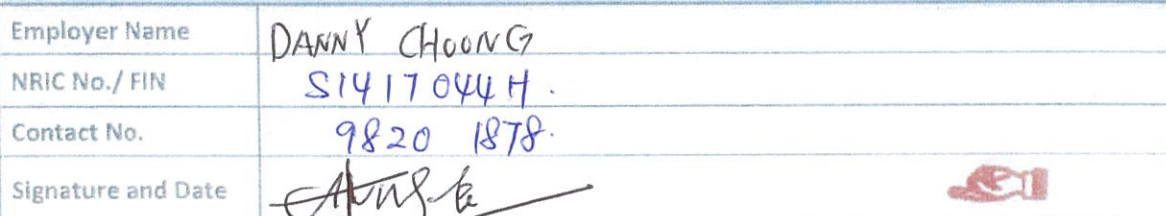 Employer Name DANNY CHOONG
NRIC No./ FIN S1417044H.
Contact No. 9820 1878.
Signature and Date